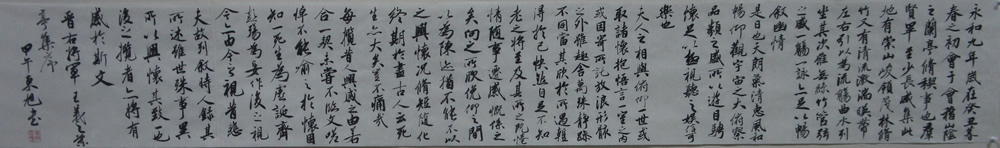 永和九年歲在癸丑暮
春之初會于會稽山陰
之蘭亭脩稧事也羣
賢畢至少長咸集此
地有崇山峻領茂林脩
竹又有清流激湍暎帶
左右引以為流觴曲水列
坐其次雖無絲竹管弦
之盛一觴一詠亦足以暢
敘幽情
是日也天朗氣清惠風和
暢仰觀宇宙之大俯察
品類之盛所以遊目騁
懷足以極視聽之娛信可
樂也
夫人之相與俯仰一世或
取諸懷抱悟言一室之內
或因寄所託放浪形骸
之外雖趣舍萬殊靜躁
不同當其欣於所遇輒
得於己快然自足不知
老之將至及其所之既惓
情隨事遷感慨係之
矣向之所欣俛仰之間
以為陳迹猶不能不以
之興懷況脩短隨化
終期於盡古人云死
生亦大矣豈不痛哉
每攬昔人興感之由若
合一契未嘗不臨文嗟
悼不能喻之於懷固
知一死生為虛誕齊
彭殤為妄作後之視
今亦由今之視昔悲
夫故列敘時人錄其
所述雖世殊事異
所以興懷其致一也
後之攬者亦將有
感於斯文
晉右將軍王羲之蘭
亭集序
甲午東旭書